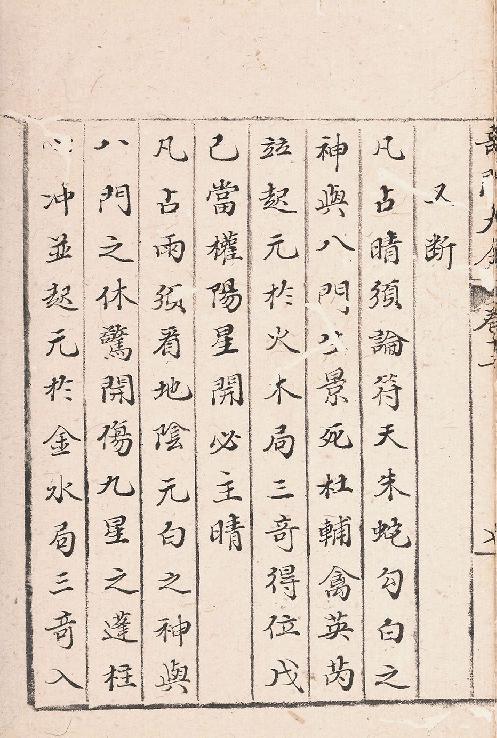 又断
凡占晴須論符天朱蛇勾白之
神與八門生景死杜輔禽英芮
竝起元於火木局三奇得位戊
己當權陽星開必主晴
凡占雨須看地陰元白之神與
八門之休驚開傷九星之蓬柱
心冲並起元於金水局三奇入